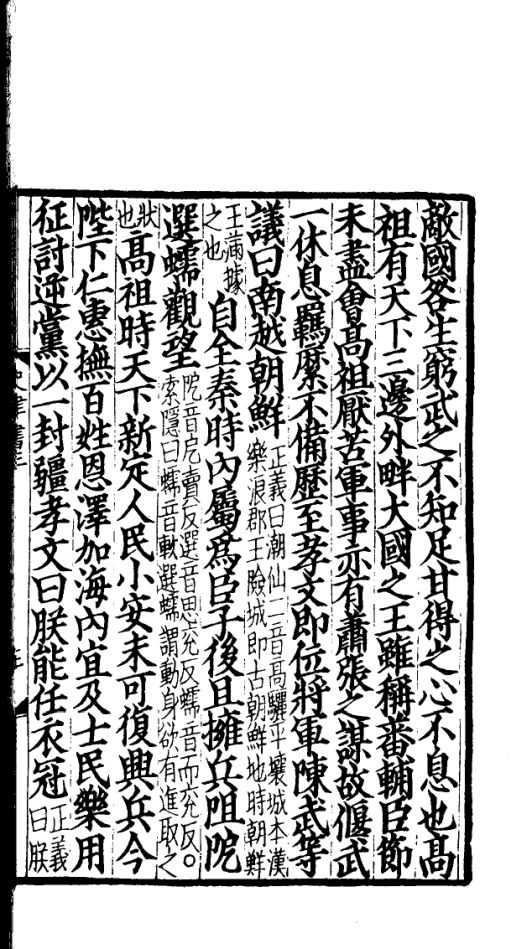 敵國咎生窮武之不知足甘得之心不息也髙
祖有天下三邊外畔大國之王雖稱蕃輔臣節
未盡會髙祖厭苦軍事亦有蕭張之謀故偃武
一休息羈縻不備歷至孝文即位將軍陳武等
議曰南越朝鮮
正義曰潮仙二音髙驪平壤城本漢
樂浪郡王險城即古朝鮮地時朝鮮
王滿據
之也
自全秦時內屬為臣子後且擁兵阻阸
選蠕觀望
阸音戹賣反選音思兖反蠕音而兖反。
索隱曰蠕音軟選蠕謂動身欲有進取之
狀
也
髙祖時天下新定人民小安未可復興兵今
陛下仁惠撫百姓恩澤加海內宜及士民樂用
征討逆黨以一封疆孝文曰朕能任衣冠
正義
曰朕